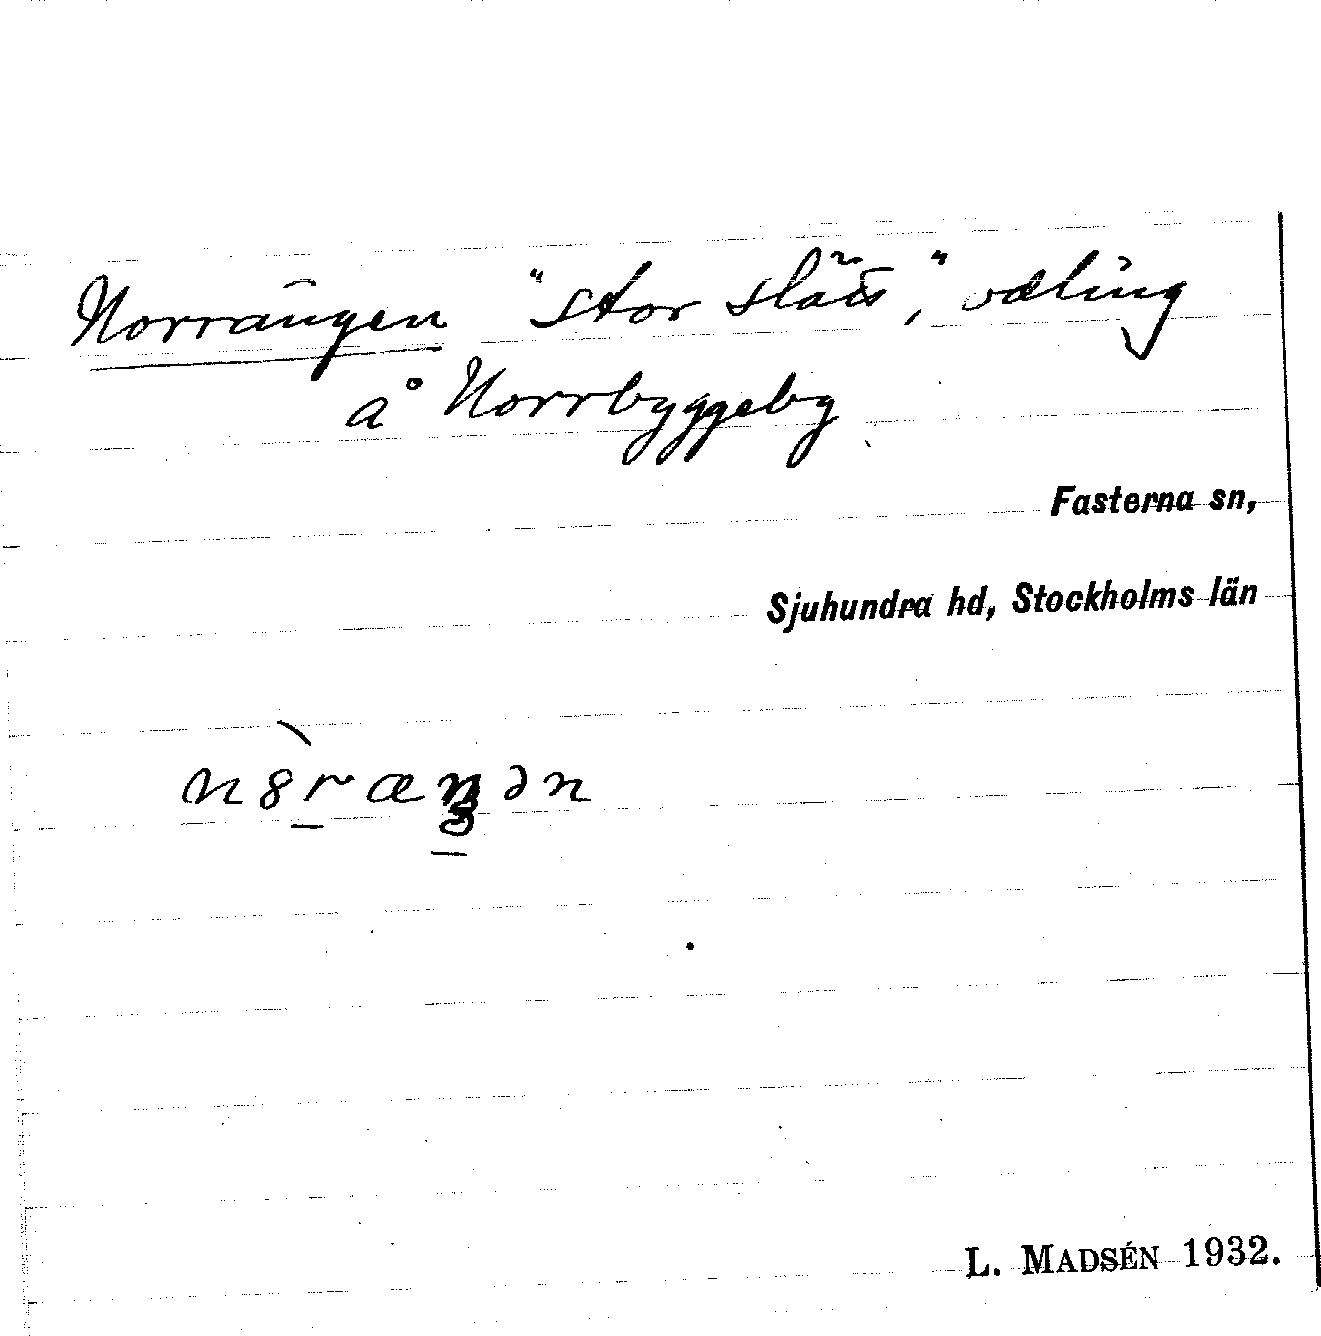 Norrängen "stor slätt", odling
å Norrbyggeby
Fasterna sn,
Sjuhundra hd, Stockholms län
L. MADSÉN 1932.